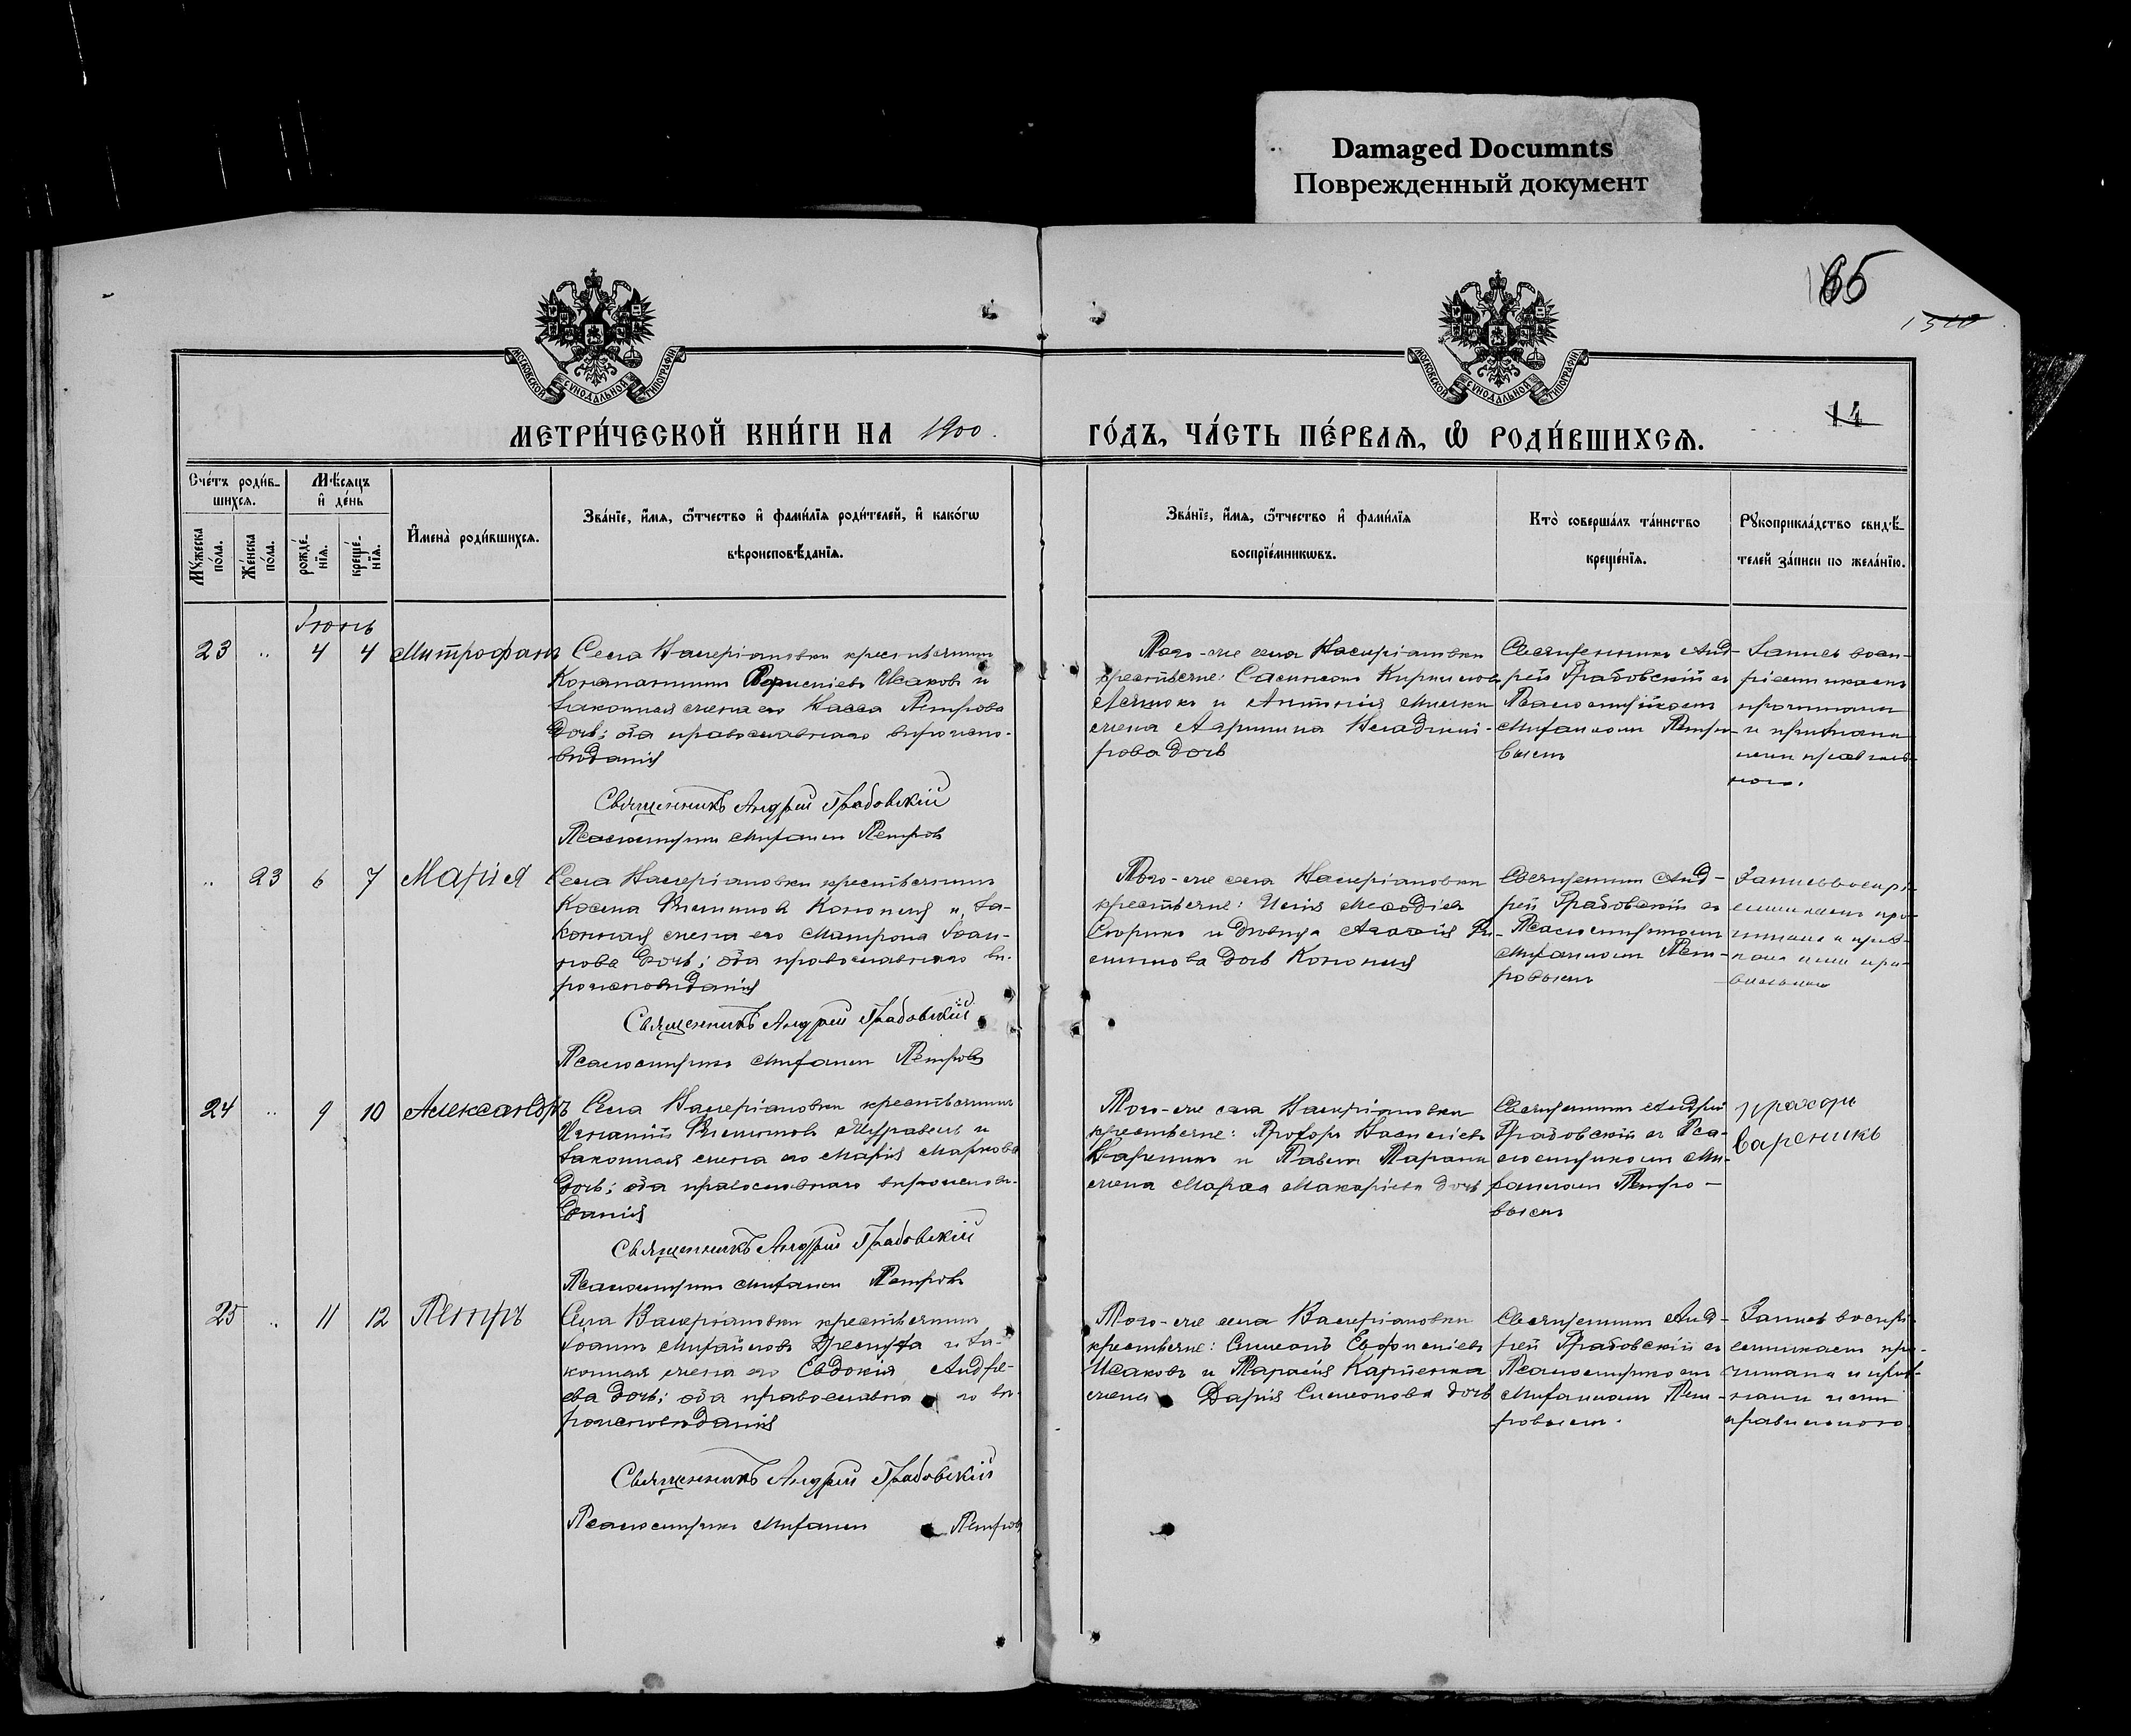 Damaged Documnts
Поврежденный документ
65
14
МОСКОВСКОЙ СѴНОДАЛЬНОЙ ТИПОГРАФІИ
МОСКОВСКОЙ СѴНОДАЛЬНОЙ ТИПОГРАФІИ
МЕТРИ́ЧЕСКОЙ КНИ́ГИ НА 1900.
ГО́ДЪ, ЧА́СТЬ ПЕ́РВАѦ, Ѽ РОДИ́ВШИХСѦ.
Сче́тъ роди́в-
шихсѧ.
Мꙋ́жеска по́ла.
Же́нска по́ла.
Мѣ́сяцъ
и҆ де́нь
рожде́-
нїѧ.
креще́-
нїѧ.
И҆мена̀ роди́вшихсѧ.
Зва́нїе, и҆́мѧ, ѻ҆́тчество и҆ фами́лїѧ роди́телей, и҆ како́гѡ
вѣроисповѣ́данїѧ.
Зва́нїе, и҆́мѧ, ѻ҆́тчество и҆ фами́лїѧ
воспрїе́мникѡвъ.
Кто̀ соверша́лъ та́инство
креще́нїѧ.
Рꙋкоприкла́дство свидѣ́-
телей за́писи по жела́нїю.
Іюнь
23 " 4 4 Митрофанъ
Села Валеріановки крестьянинъ
Исаковъ и
законная жена его Васса Петрова
дочь; оба православнаго вѣроиспо-
вѣданія
Священникъ Андрей Грабовскій
Псаломщикъ Михаилъ Петровъ
Того-же села Валеріановки
крестьяне:
и Антонія
жена Агрипина Владимі-
рова дочь
Священникъ Анд-
рей Грабовскій съ
Псаломщикомъ
Михаиломъ Петро-
вымъ
Запись восп-
ріемникамъ
прочитана
и признана
ими правиль-
ною.
" 23 6 7 Марія
Села Валеріановки крестьянинъ
Косма Филипповъ Кононецъ и за-
конная жена его Матрона Іоан-
нова дочь; оба православнаго вѣ-
роисповѣданія
Священникъ Андрей Грабовскій
Псаломщикъ Михаилъ Петровъ
Того-же села Валеріановки
крестьяне:
и дѣвица Агафія Фи-
липпова дочь
Священникъ Анд-
рей Грабовскій съ
Псаломщикомъ
Михаиломъ Пет-
ровымъ
Запись воспрі-
емникамъ про-
читана и приз-
нана ими пра-
вильною
24 " 9 10 Александръ
Села Валеріановки крестьянинъ
Игнатій Филипповъ Журавель и
законная жена его Марія Маркова
дочь; оба православнаго вѣроисповѣ-
данія
Священникъ Андрей Грабовскій
Псаломщикъ Михаилъ Петровъ
Того-же села Валеріановки
крестьяне: Прохоръ Васильевъ
Вареникъ и Павла
жена Марѳа Макаріева дочь
Священникъ Андрей
Грабовскій съ Пса-
ломщикомъ Ми-
хаиломъ Петро-
вымъ
Прохоръ
Вареникъ
25 " 11 12 Петръ
Села Валеріановки крестьянинъ
Іоаннъ Михайловъ и за-
конная жена его Евдокія Андре-
ева дочь; оба православнаго вѣ-
роисповѣданія
Священникъ Андрей Грабовскій
Псаломщикъ Михаилъ Петровъ
Того-же села Валеріановки
крестьяне: Симеонъ
Исаковъ и Тарасія Карпенка
жена Дарія Симеонова дочь
Священникъ Анд-
рей Грабовскій съ
Псаломщикомъ
Михаиломъ Пет-
ровымъ.
Запись воспрі-
емникамъ про-
читана и приз-
нана ими
правильною